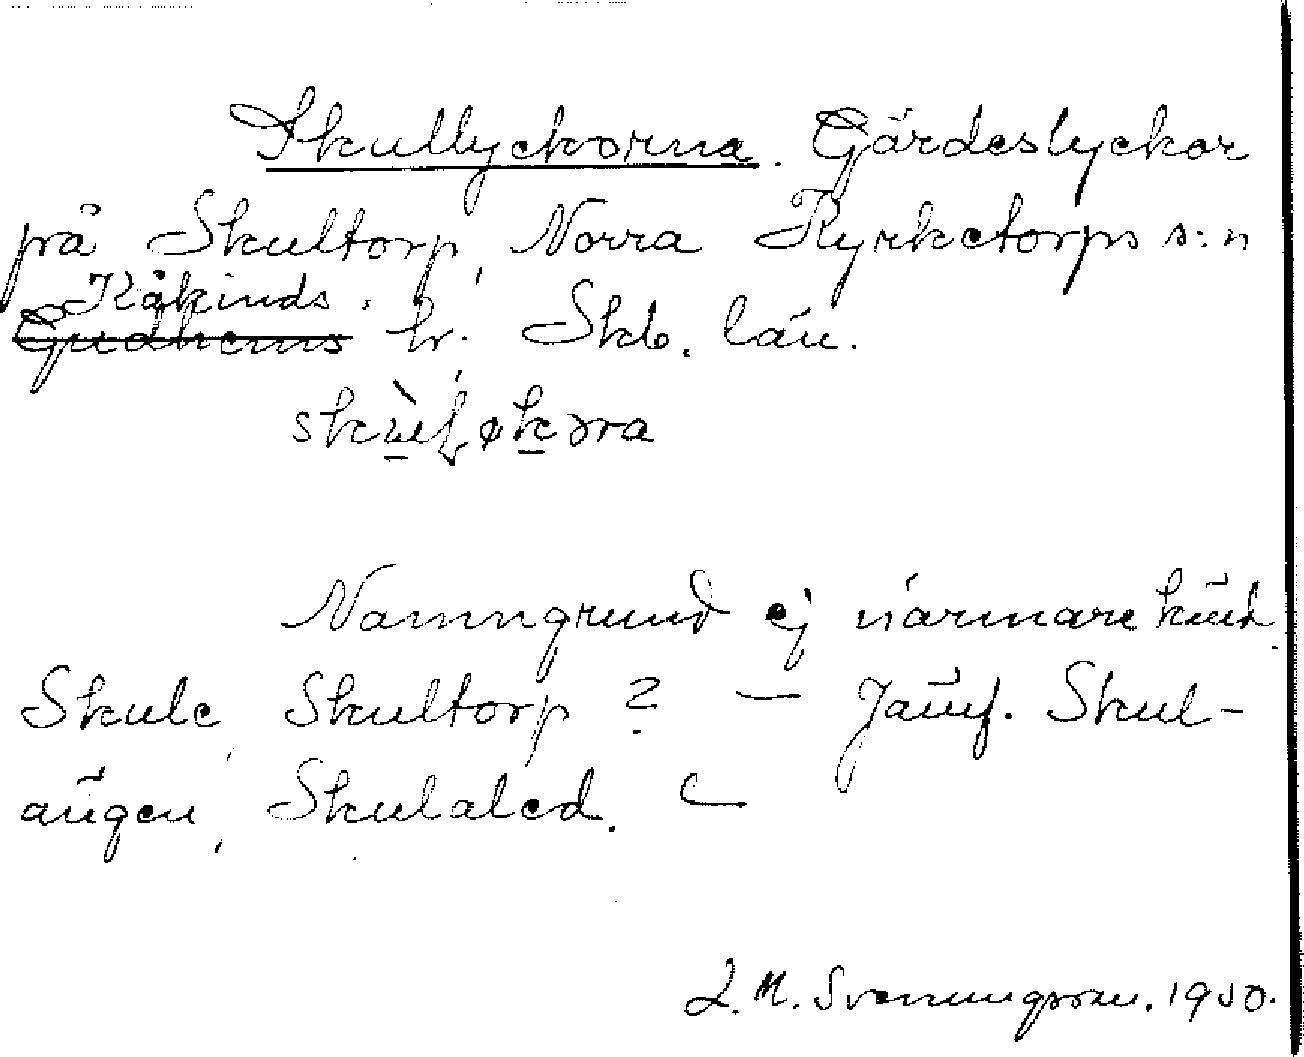 Skullyckorna. Gärdeslyckor
på Skultorp, Norra Kyrketorps s:n
Kåkinds
Gudhems hr. Skb. län.
Namngrund ej närmare känd.
Skule, Skultorp? — Jämf. Skul-
ängen, Skulaled. —
L. M. Svenungsson. 1930.